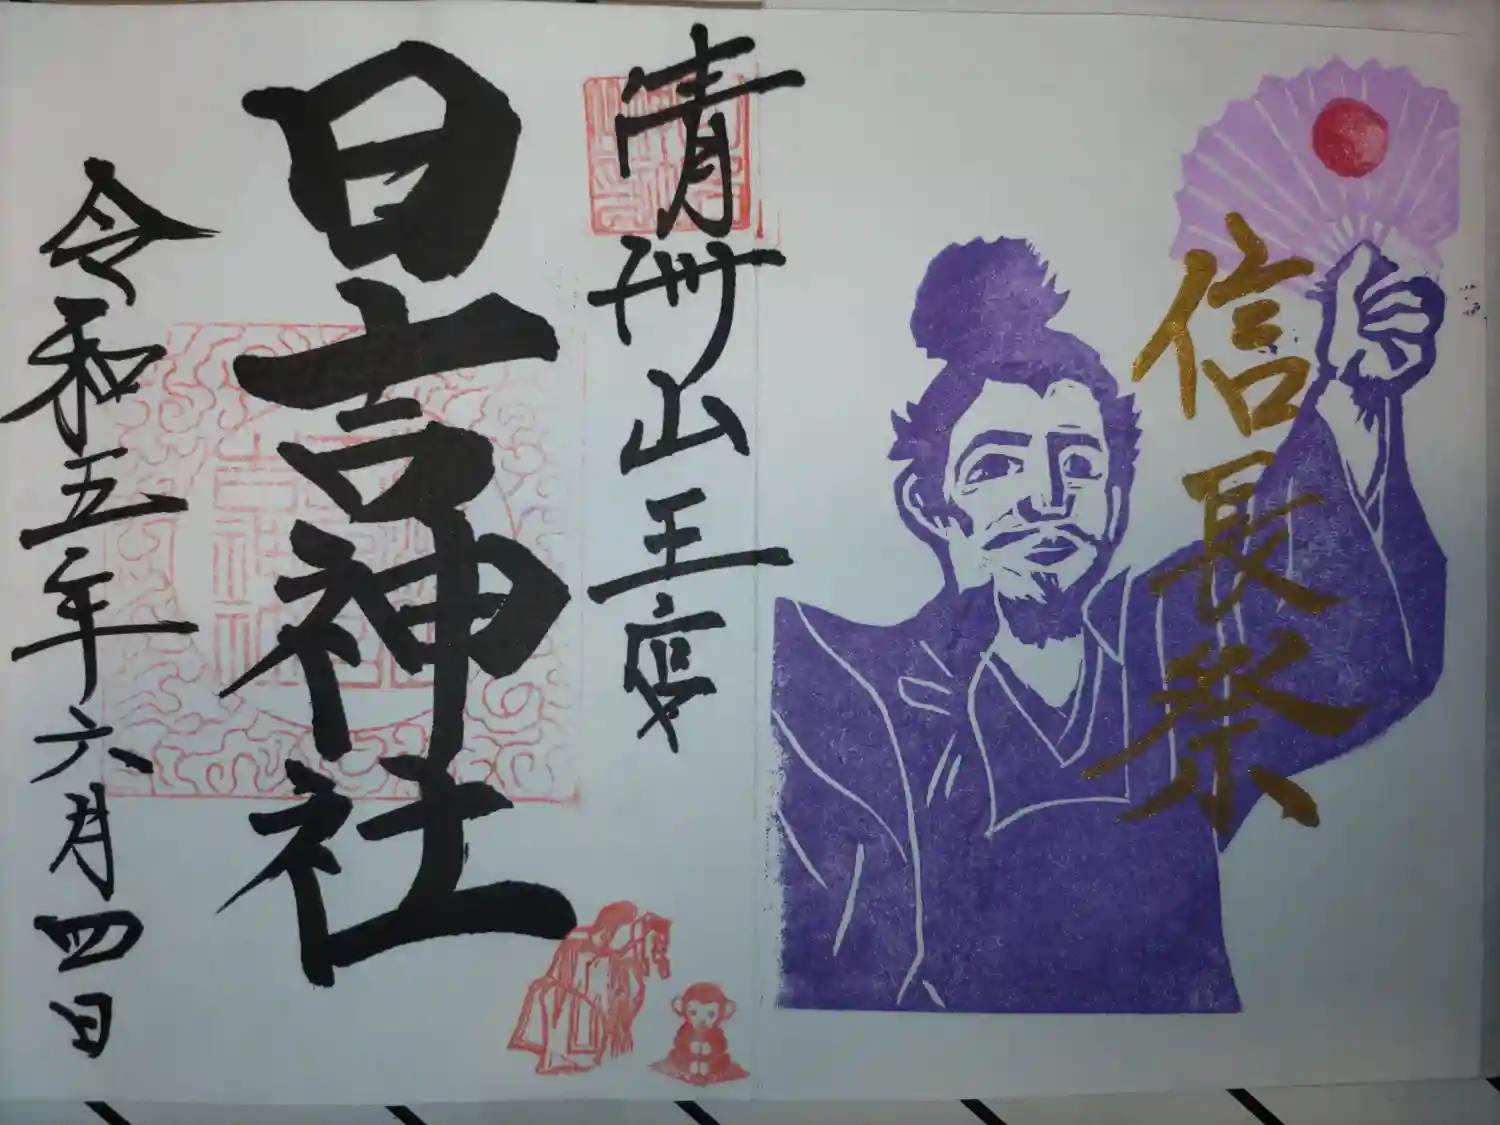 信長祭
清洲山王宮
日吉神社
令和五年六月四日